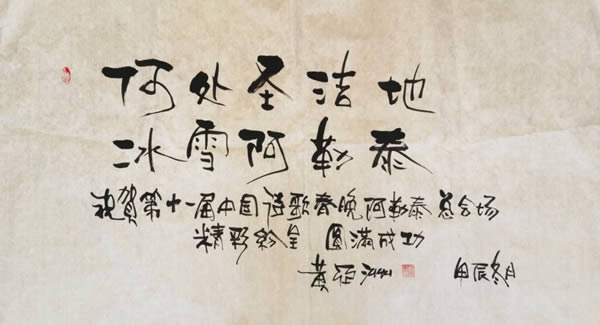 何处圣洁地
冰雪阿勒泰
祝贺第十一届中国诗歌春晚阿勒泰总会场
精彩纷呈 圆满成功
黄亚洲 甲辰冬月